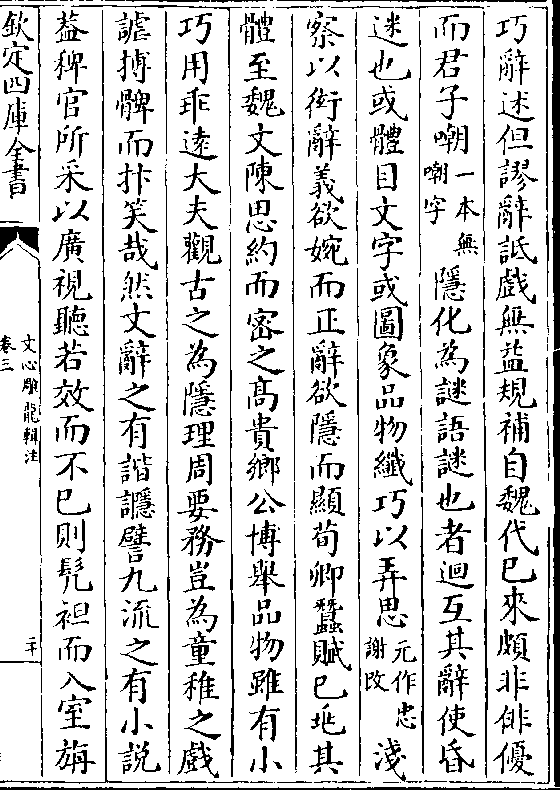 巧辭述但謬辭詆戲無益規補自魏代已來頗非俳優
而君子嘲一本無嘲字隱化為謎語謎也者迴互其辭使昏
迷也或體目文字或圖象品物纖巧以弄思元作忠謝改淺
察以衒辭義欲婉而正辭欲隱而顯荀卿蠶賦已兆其
體至魏文陳思約而密之髙貴鄉公博舉品物雖有小
巧用乖逺大夫觀古之為隱理周要務豈為童稚之戲
謔搏髀而抃笑哉然文辭之有諧讔譬九流之有小說
葢稗官所采以廣視聽若效而不已則髠袒而入室旃
欽定四庫全書
文心雕龍輯注
卷三
二十